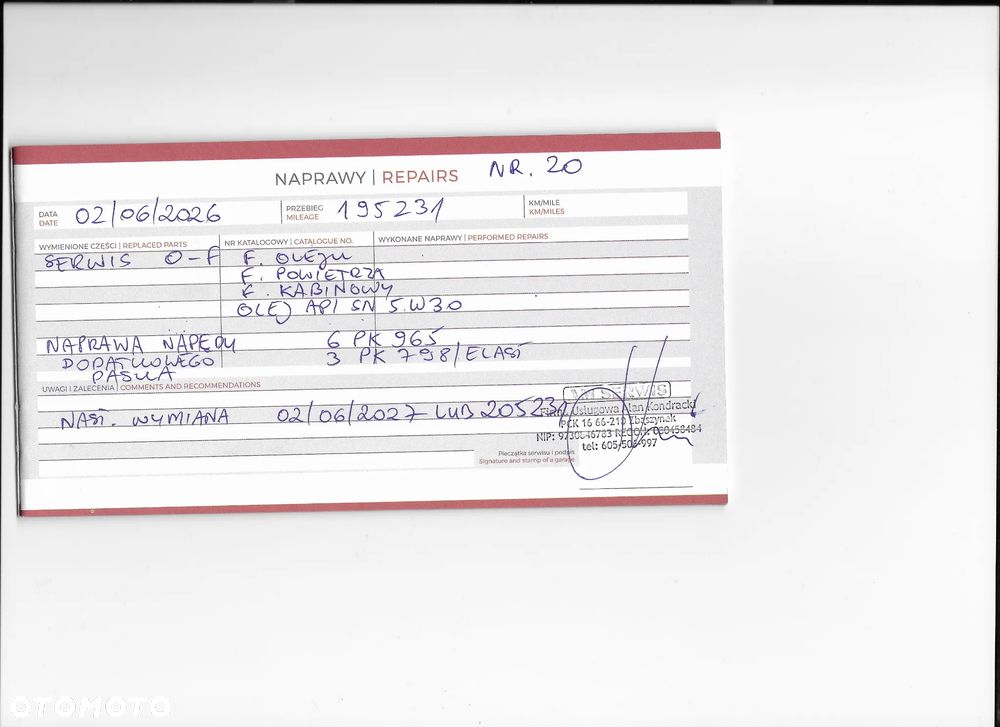 NAPRAWY | REPAIRS NR. 20
DATA
DATE
02/06/2026
PRZEBIEG
MILEAGE
195231
KM/MILE
KM/MILES
WYMIENIONE CZĘŚCI | REPLACED PARTS
NR KATALOGOWY | CATALOGUE NO.
WYKONANE NAPRAWY | PERFORMED REPAIRS
SERWIS O-F F. OLEJU
F. POWIETRZA
F. KABINOWY
OLEJ API SN 5W30
NAPRAWA NAPĘDU 6 PK 965
DODATKOWEGO 3 PK 798/ELAST
PASKA
UWAGI I ZALECENIA | COMMENTS AND RECOMMENDATIONS
NAST. WYMIANA 02/06/2027 LUB 205231
SERWIS
Usługowa Alan Kondracki
PCK 16 66-210 Zbąszynek
NIP:
tel: 605/506-997
Pieczątka serwisu i podpis
Signature and stamp of a garage
OTOMOTO